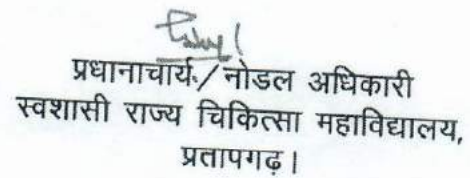 प्रधानाचार्य / नोडल अधिकारी
स्वशासी राज्य चिकित्सा महाविद्यालय,
प्रतापगढ़।